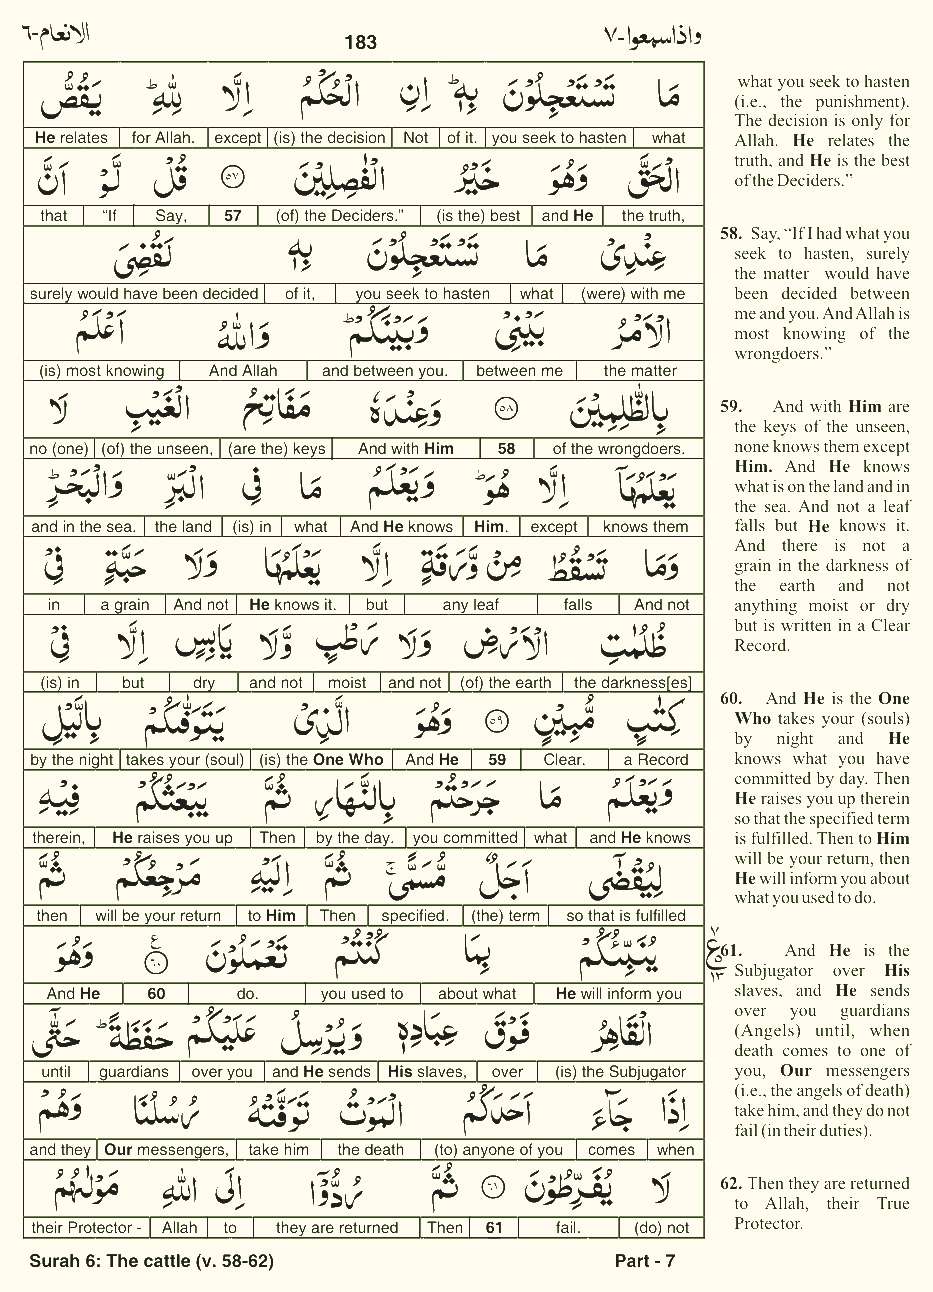 واذاسمعوا-٧ 183 الانعام-٦
مَا تَسْتَعْجِلُوْنَ بِهٖ ؕ اِنِ الْحُكْمُ اِلَّا لِلّٰهِ ؕ يَقُصُّ
what | you seek to hasten | of it. | Not | (is) the decision | except | for Allah. | He relates
الْحَقَّ وَهُوَ خَيْرُ الْفٰصِلِيْنَ ۝٥٧ قُلْ لَّوْ اَنَّ
the truth, | and He | (is the) best | (of) the Deciders." | 57 | Say, | "If | that
عِنْدِىْ مَا تَسْتَعْجِلُوْنَ بِهٖ لَقُضِىَ
(were) with me | what | you seek to hasten | of it, | surely would have been decided
الْاَمْرُ بَيْنِىْ وَبَيْنَكُمْ ؕ وَاللّٰهُ اَعْلَمُ
the matter | between me | and between you. | And Allah | (is) most knowing
بِالظّٰلِمِيْنَ ۝٥٨ وَعِنْدَهٗ مَفَاتِحُ الْغَيْبِ لَا
of the wrongdoers. | 58 | And with Him | (are the) keys | (of) the unseen, | no (one)
يَعْلَمُهَاۤ اِلَّا هُوَ ؕ وَيَعْلَمُ مَا فِى الْبَرِّ وَالْبَحْرِ ؕ
knows them | except | Him. | And He knows | what | (is) in | the land | and in the sea.
وَمَا تَسْقُطُ مِنْ وَّرَقَةٍ اِلَّا يَعْلَمُهَا وَلَا حَبَّةٍ فِىْ
And not | falls | any leaf | but | He knows it. | And not | a grain | in
ظُلُمٰتِ الْاَرْضِ وَلَا رَطْبٍ وَّلَا يَابِسٍ اِلَّا فِىْ
the darkness[es] | (of) the earth | and not | moist | and not | dry | but | (is) in
كِتٰبٍ مُّبِيْنٍ ۝٥٩ وَهُوَ الَّذِىْ يَتَوَفّٰٮكُمْ بِالَّيْلِ
a Record | Clear. | 59 | And He | (is) the One Who | takes your (soul) | by the night
وَيَعْلَمُ مَا جَرَحْتُمْ بِالنَّهَارِ ثُمَّ يَبْعَثُكُمْ فِيْهِ
and He knows | what | you committed | by the day. | Then | He raises you up | therein,
لِيُقْضٰٓى اَجَلٌ مُّسَمًّى ۚ ثُمَّ اِلَيْهِ مَرْجِعُكُمْ ثُمَّ
so that is fulfilled | (the) term | specified. | Then | to Him | will be your return | then
يُنَبِّئُكُمْ بِمَا كُنْتُمْ تَعْمَلُوْنَ ۝٦٠ ع وَهُوَ
He will inform you | about what | you used to | do. | 60 | And He
الْقَاهِرُ فَوْقَ عِبَادِهٖ وَيُرْسِلُ عَلَيْكُمْ حَفَظَةً ؕ حَتّٰٓى
(is) the Subjugator | over | His slaves, | and He sends | over you | guardians | until
اِذَا جَآءَ اَحَدَكُمُ الْمَوْتُ تَوَفَّتْهُ رُسُلُنَا وَهُمْ
when | comes | (to) anyone of you | the death | take him | Our messengers, | and they
لَا يُفَرِّطُوْنَ ۝٦١ ثُمَّ رُدُّوْۤا اِلَى اللّٰهِ مَوْلٰٮهُمُ
(do) not | fail. | 61 | Then | they are returned | to | Allah | their Protector -
what you seek to hasten
(i.e., the punishment).
The decision is only for
Allah. He relates the
truth, and He is the best
of the Deciders."
58. Say, "If I had what you
seek to hasten, surely
the matter would have
been decided between
me and you. And Allah is
most knowing of the
wrongdoers."
59. And with Him are
the keys of the unseen,
none knows them except
Him. And He knows
what is on the land and in
the sea. And not a leaf
falls but He knows it.
And there is not a
grain in the darkness of
the earth and not
anything moist or dry
but is written in a Clear
Record.
60. And He is the One
Who takes your (souls)
by night and He
knows what you have
committed by day. Then
He raises you up therein
so that the specified term
is fulfilled. Then to Him
will be your return, then
He will inform you about
what you used to do.
٧
ع
٥
١٣
61. And He is the
Subjugator over His
slaves, and He sends
over you guardians
(Angels) until, when
death comes to one of
you, Our messengers
(i.e., the angels of death)
take him, and they do not
fail (in their duties).
62. Then they are returned
to Allah, their True
Protector.
Surah 6: The cattle (v. 58-62) Part - 7